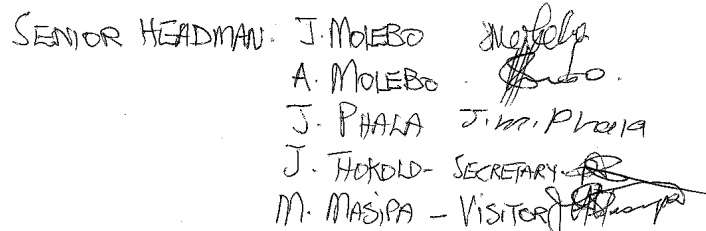 SENIOR HEADMAN. J. MOLEBO
A. MOLEBO.
J. PHALA J.M. Phala
J. THOKOLO - SECRETARY -
M. MASIPA - VISITOR